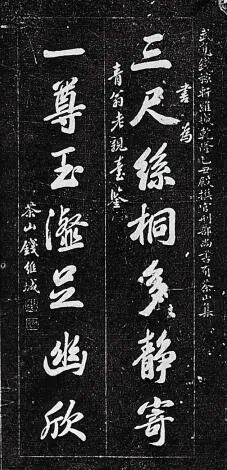 武進錢稼軒維城乾隆乙丑殿撰官刑部尚書有茶山集
三尺絲桐多靜寄
書為
青翁老親臺鑒
一尊玉瀣足幽欣
茶山錢維城